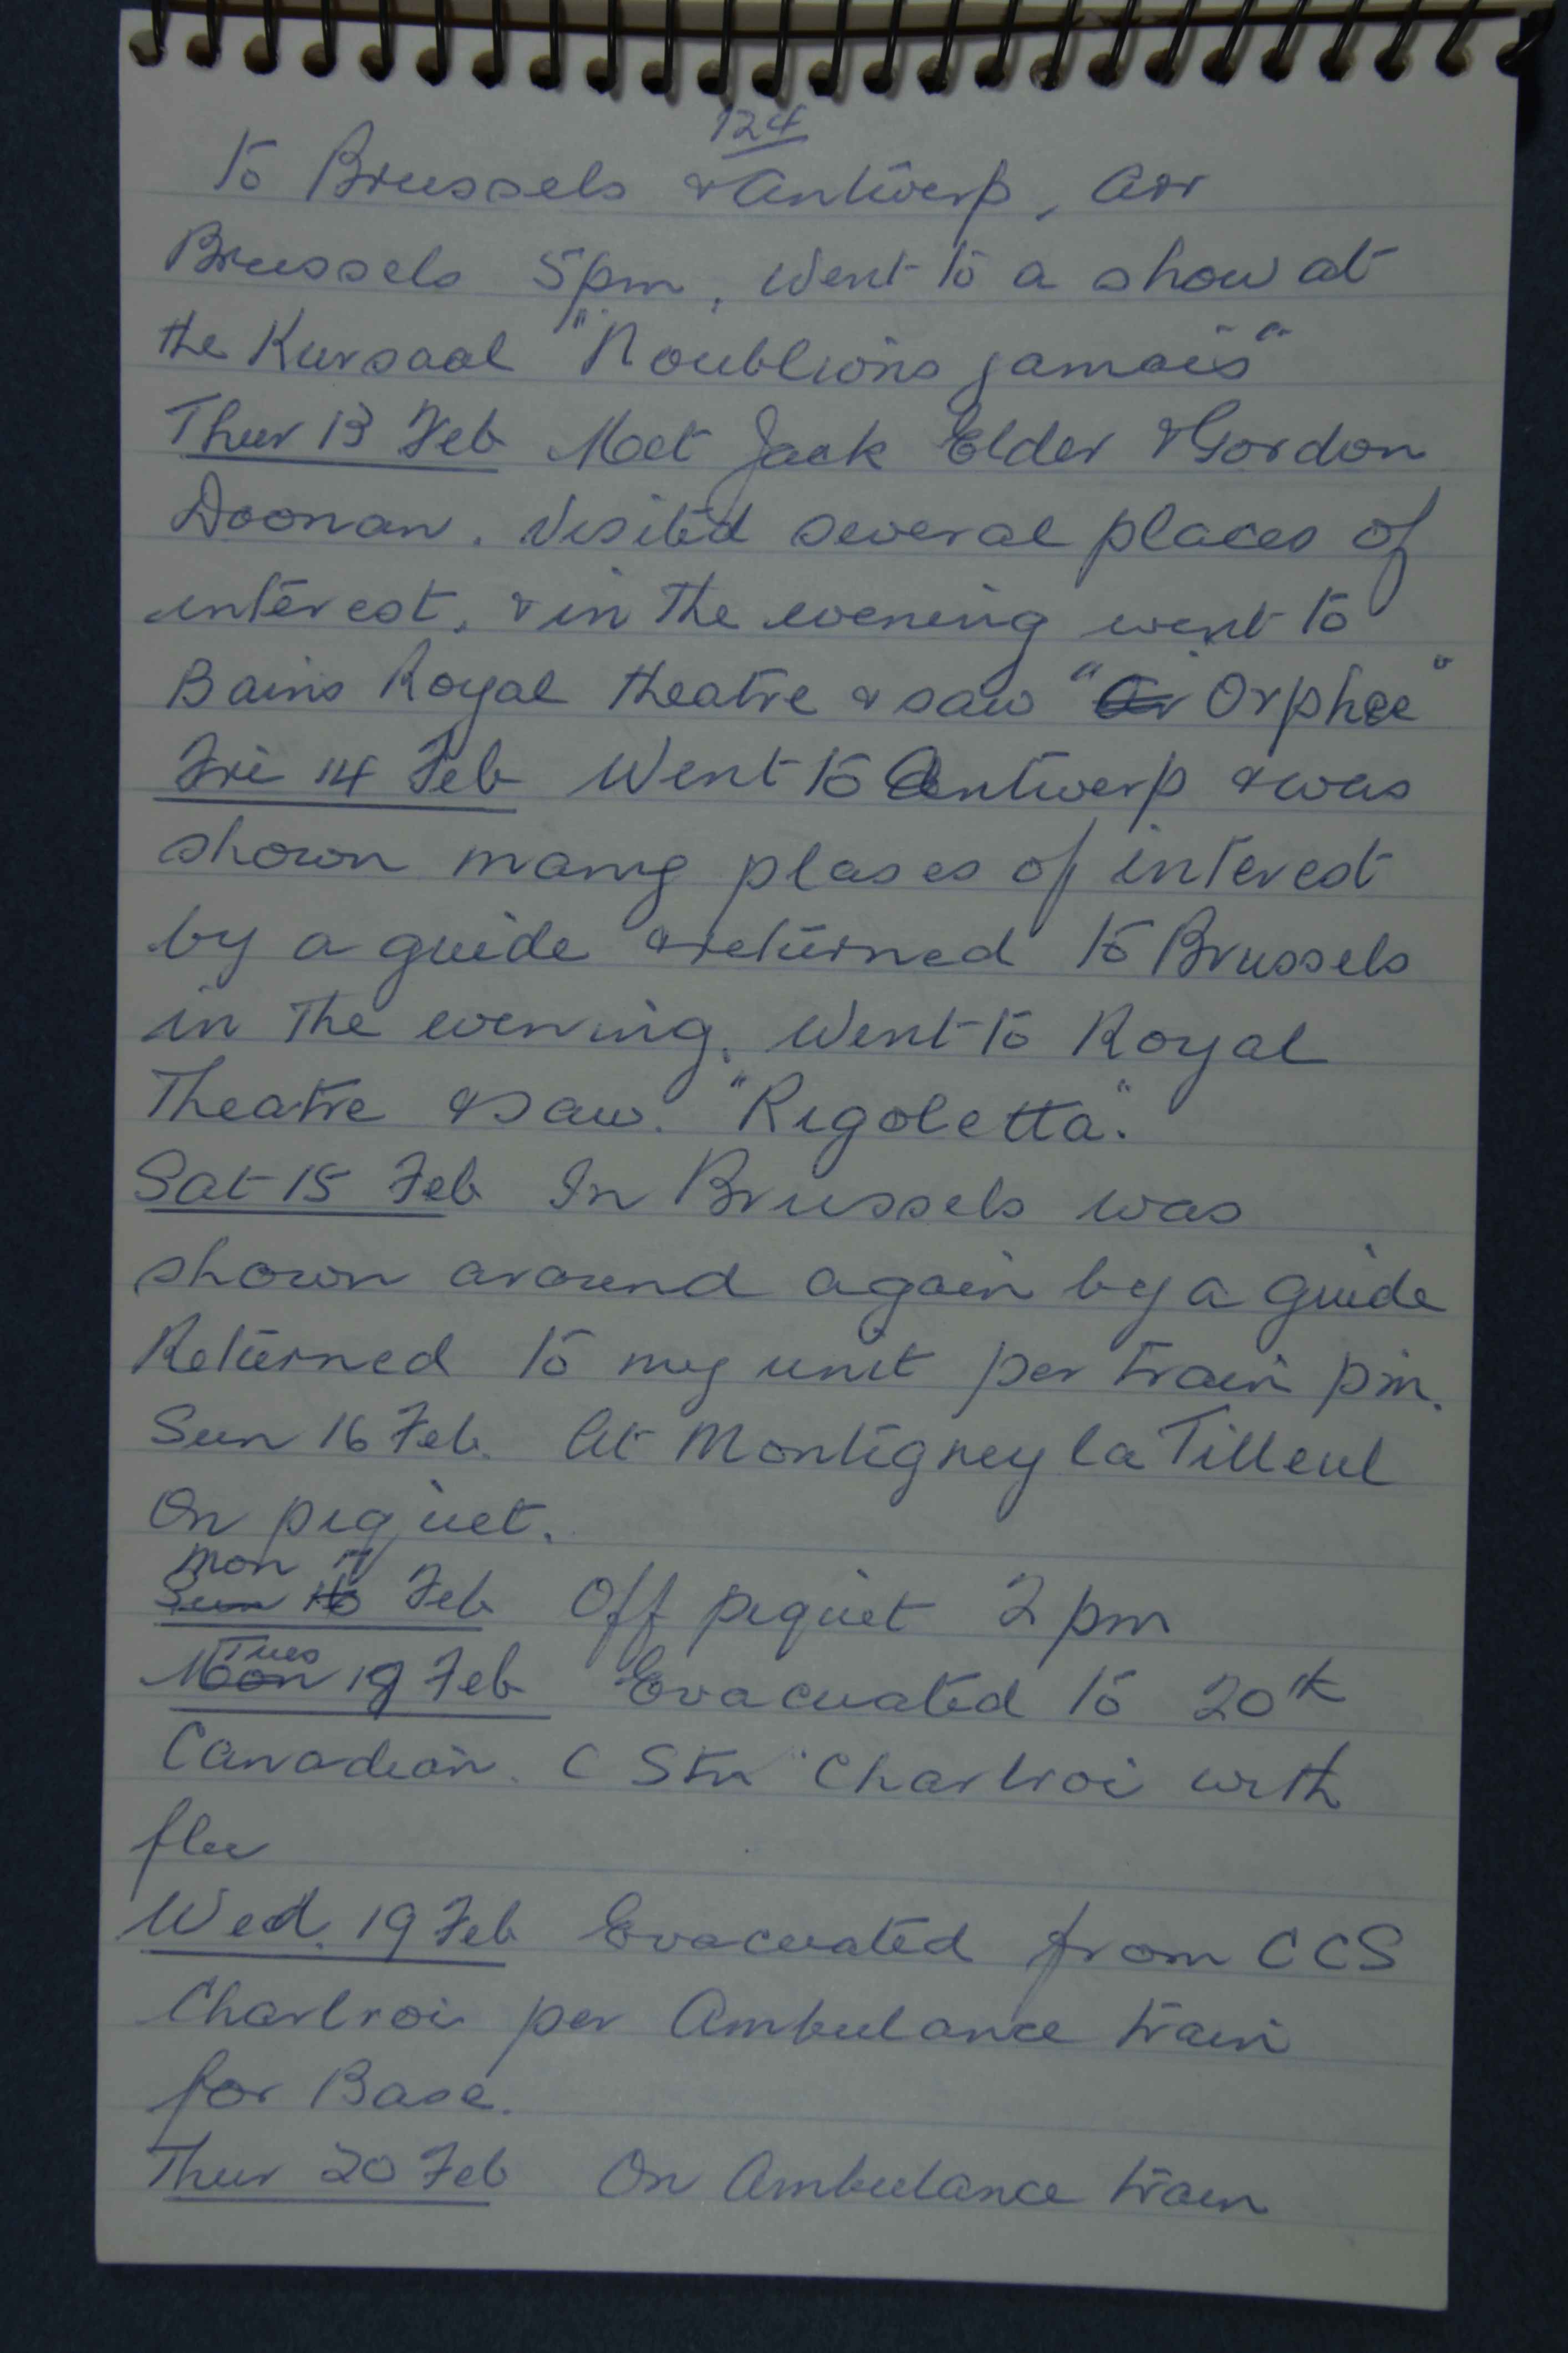 124
to Brussels & Antwerp, arr
Brussels 5pm, Went to a show at
the Kursaal "Noublions jamais"
Thur 13 Feb Met Jack Elder & Gordon
Doonan. Visited several places of
interest, & in the evening went to
Bains Royal theatre & saw "Or Orphee"
Fri 14 Feb Went to Antwerp & was
shown many plases of interest
by a guide & returned to Brussels
in the evening. Went to Royal
Theatre & saw. "Rigoletta".
Sat 15 Feb In Brussels was
shown around again by a guide
Returned to my unit per train pm.
Sun 16 Feb. At Montigney la Tilleul
On piquet.
Mon 17
Sun 16 Feb Off piquet 2 pm
Tues
Mon 18 Feb Evacuated to 20th
Canadian. C Stn Charlroi with
flu
Wed. 19 Feb Evacuated from CCS
Charlroi per Ambulance train
for Base.
Thur 20 Feb On Ambulance train